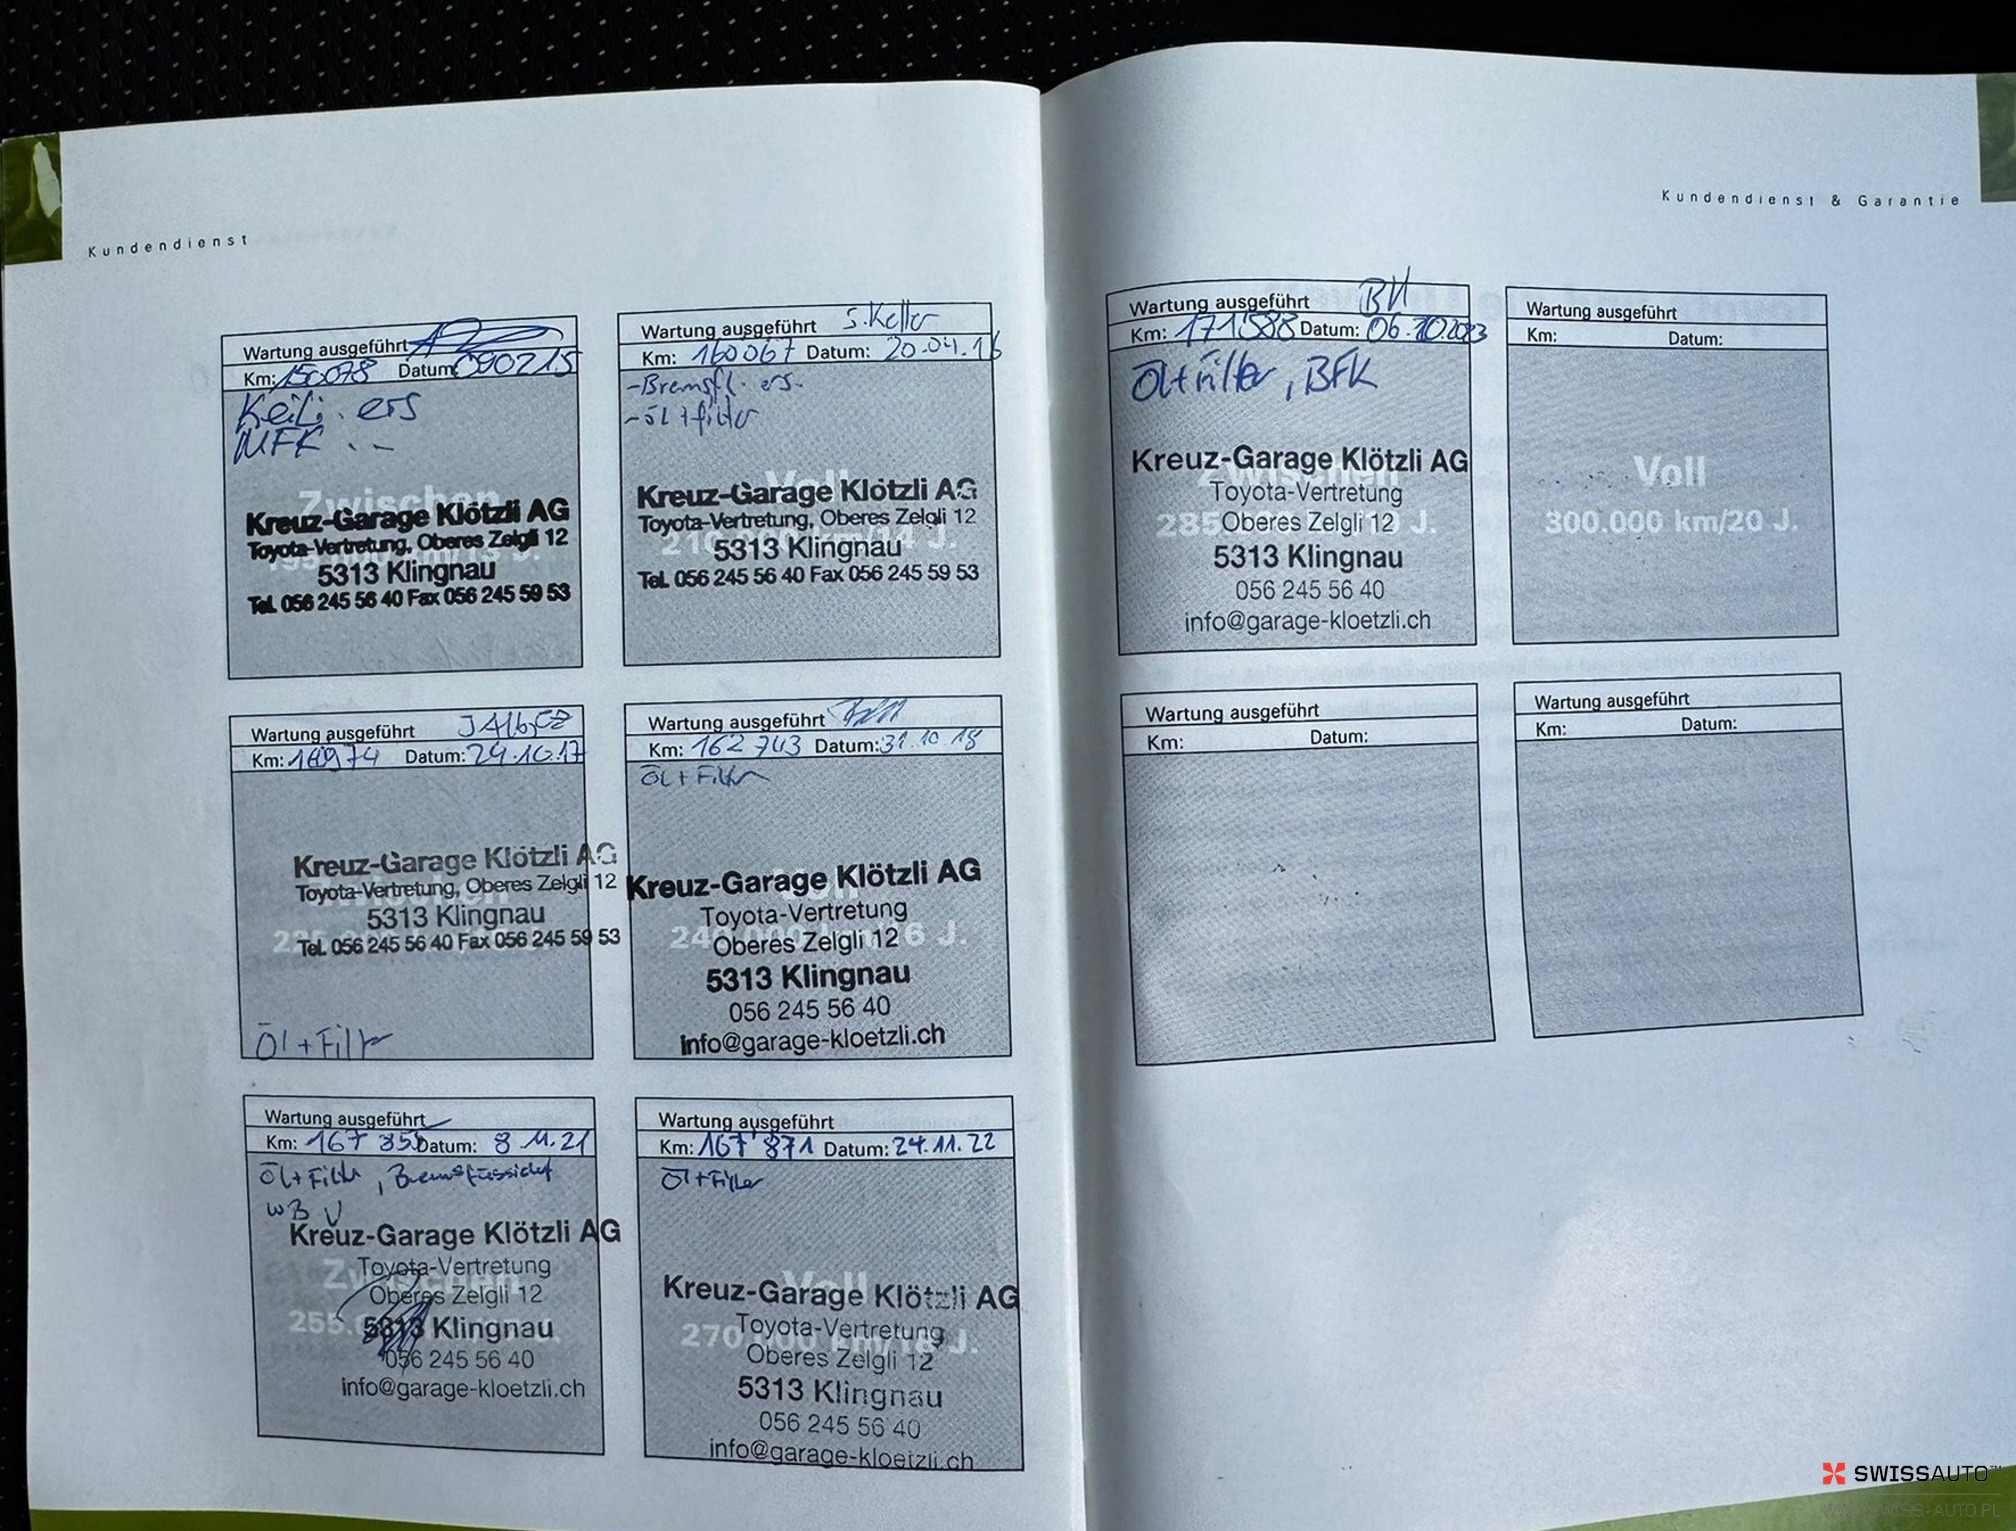 Kundendienst
Wartung ausgeführt
Km: 150078 Datum: 090215
Keili. ers
MFK
Zwischen
Kreuz-Garage Klötzli AG
Toyota-Vertretung, Oberes Zelgli 12
5313 Klingnau
Tel. 056 245 56 40 Fax 056 245 59 53
Wartung ausgeführt S. Keller
Km: 160067 Datum: 20.04.16
-Bremsfl. ers.
-öl + filter
Voll
Kreuz-Garage Klötzli AG
Toyota-Vertretung, Oberes Zelgli 12
5313 Klingnau
Tel. 056 245 56 40 Fax 056 245 59 53
Wartung ausgeführt
Km: Datum: 24.10.17
Kreuz-Garage Klötzli AG
Toyota-Vertretung, Oberes Zelgli 12
5313 Klingnau
Tel. 056 245 56 40 Fax 056 245 59 53
Öl + Filter
Wartung ausgeführt
Km: 162 743 Datum: 31.10.18
Öl + Filter
Kreuz-Garage Klötzli AG
Toyota-Vertretung
Oberes Zelgli 12
5313 Klingnau
056 245 56 40
info@garage-kloetzli.ch
Wartung ausgeführt
Km: 167 Datum: 8 11.21
Öl + Filter, Bremsflüssigkeit
WB V
Kreuz-Garage Klötzli AG
Toyota-Vertretung
Oberes Zelgli 12
5313 Klingnau
056 245 56 40
info@garage-kloetzli.ch
Wartung ausgeführt
Km: 167'871 Datum: 24.11.22
Öl + Filter
Voll
Kreuz-Garage Klötzli AG
Toyota-Vertretung
Oberes Zelgli 12
5313 Klingnau
056 245 56 40
info@garage-kloetzli.ch
Kundendienst & Garantie
Wartung ausgeführt
Km: 171588 Datum: 06.10.2023
Öl + Filter, BFK
Zwischen
Kreuz-Garage Klötzli AG
Toyota-Vertretung
Oberes Zelgli 12
5313 Klingnau
056 245 56 40
info@garage-kloetzli.ch
Wartung ausgeführt
Km: Datum:
Voll
300.000 km/20 J.
Wartung ausgeführt
Km: Datum:
Wartung ausgeführt
Km: Datum:
SWISSAUTO™